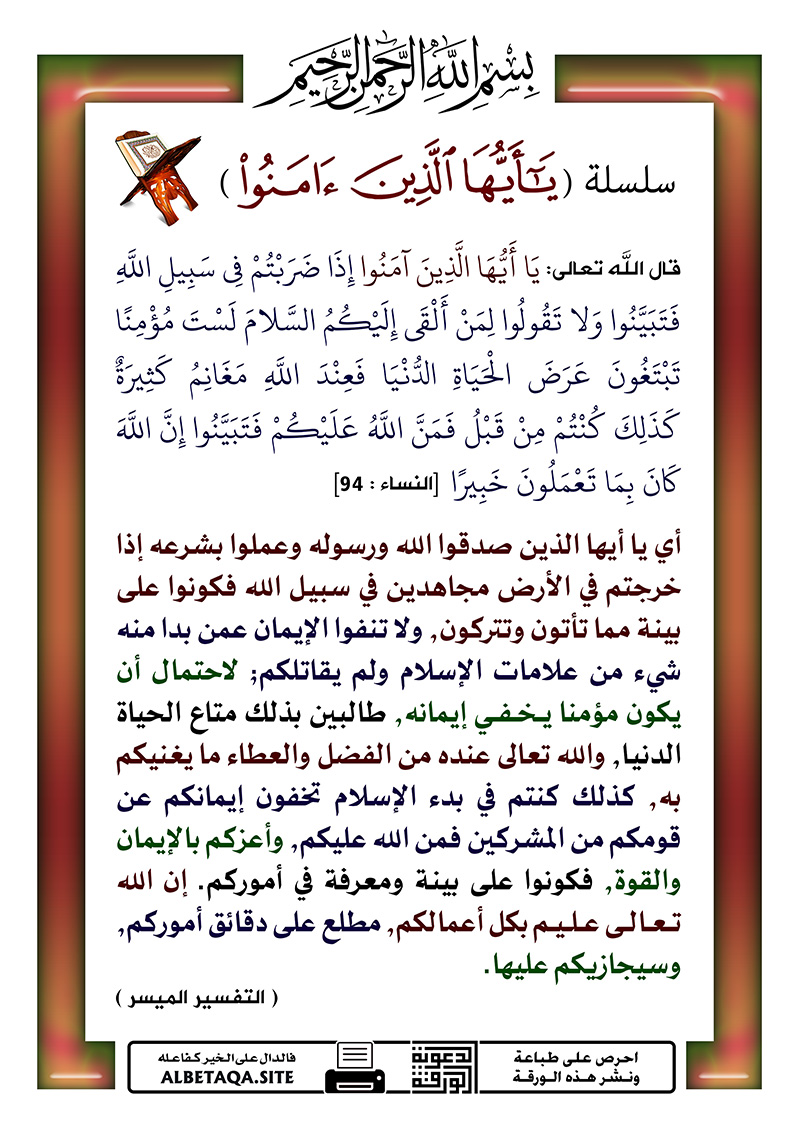 بِسْمِ اللَّهِ الرَّحْمَٰنِ الرَّحِيمِ
سلسلة ( يَٰٓأَيُّهَا ٱلَّذِينَ ءَامَنُوا۟ )
قال الله تعالى: يَا أَيُّهَا الَّذِينَ آمَنُوا إِذَا ضَرَبْتُمْ فِي سَبِيلِ اللَّهِ
فَتَبَيَّنُوا وَلا تَقُولُوا لِمَنْ أَلْقَى إِلَيْكُمُ السَّلامَ لَسْتَ مُؤْمِنًا
تَبْتَغُونَ عَرَضَ الْحَيَاةِ الدُّنْيَا فَعِنْدَ اللَّهِ مَغَانِمُ كَثِيرَةٌ
كَذَلِكَ كُنْتُمْ مِنْ قَبْلُ فَمَنَّ اللَّهُ عَلَيْكُمْ فَتَبَيَّنُوا إِنَّ اللَّهَ
كَانَ بِمَا تَعْمَلُونَ خَبِيرًا [النساء : 94]
أي يا أيها الذين صدقوا الله ورسوله وعملوا بشرعه إذا
خرجتم في الأرض مجاهدين في سبيل الله فكونوا على
بينة مما تأتون وتتركون, ولا تنفوا الإيمان عمن بدا منه
شيء من علامات الإسلام ولم يقاتلكم; لاحتمال أن
يكون مؤمنا يخفي إيمانه, طالبين بذلك متاع الحياة
الدنيا, والله تعالى عنده من الفضل والعطاء ما يغنيكم
به, كذلك كنتم في بدء الإسلام تخفون إيمانكم عن
قومكم من المشركين فمن الله عليكم, وأعزكم بالإيمان
والقوة, فكونوا على بينة ومعرفة في أموركم. إن الله
تعالى عليم بكل أعمالكم, مطلع على دقائق أموركم,
وسيجازيكم عليها.
( التفسير الميسر )
احرص على طباعة
ونشر هذه الورقة
الورقة
الدعوية
فالدال على الخير كفاعله
ALBETAQA.SITE